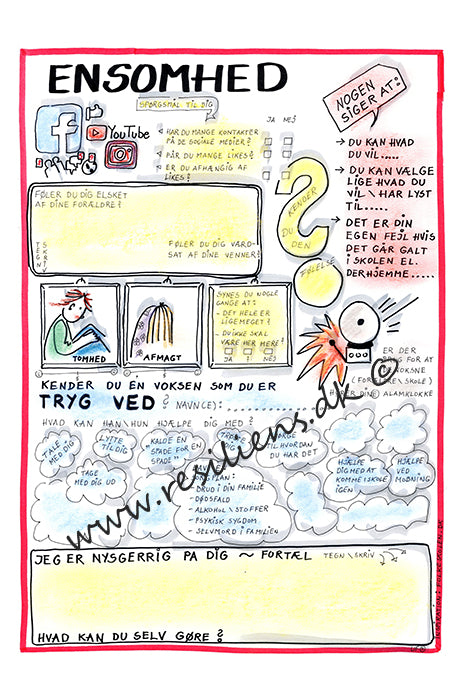 ENSOMHED
SPØRGSMÅL TIL DIG
NOGEN
SIGER AT:
YouTube
JA NEJ
HAR DU MANGE KONTAKTER
PÅ DE SOCIALE MEDIER?
FÅR DU MANGE LIKES?
ER DU AFHÆNGIG AF
LIKES?
→ DU KAN HVAD
DU VIL.....
→ DU KAN VÆLGE
LIGE HVAD DU
VIL \ HAR LYST
TIL.....
→ DET ER DIN
EGEN FEJL HVIS
DET GÅR GALT
I SKOLEN EL.
DERHJEMME.....
KENDER
DU
DEN
FØLELSE
FØLER DU DIG ELSKET
AF DINE FORÆLDRE?
TEGN
SKRIV
FØLER DU DIG VÆRD-
SAT AF DINE VENNER?
TOMHED
AFMAGT
SYNES DU NOGLE
GANGE AT:
- DET HELE ER
LIGEMEGET?
- DU IKKE SKAL
VÆRE HER MERE?
JA ? NEJ
ER DER
BRUG FOR AT
VOKSNE
(FORÆLDRE \ SKOLE)
HØRER DINE) ALAMKLOKKE
KENDER DU EN VOKSEN SOM DU ER
TRYG VED? NAVN(E):
HVAD KAN HAN\HUN HJÆLPE DIG MED?
TALE
MED DIG
LYTTE
TIL DIG
"KALDE EN
SPADE FOR EN
SPADE"
TIL HVORDAN
DU HAR DET
TAGE
MED DIG UD
HJÆLPE
DIG MED AT
KOMME I SKOLE
IGEN
HJÆLPE
VED
MOBNING
- BRUD I DIN FAMILIE
- DØDSFALD
- ALKOHOL \ STOFFER
- PSYKISK SYGDOM
- SELVMORD I FAMILIEN
www.resiliens.dk ©
JEG ER NYSGERRIG PÅ DIG ~ FORTÆL TEGN \ SKRIV
HVAD KAN DU SELV GØRE?